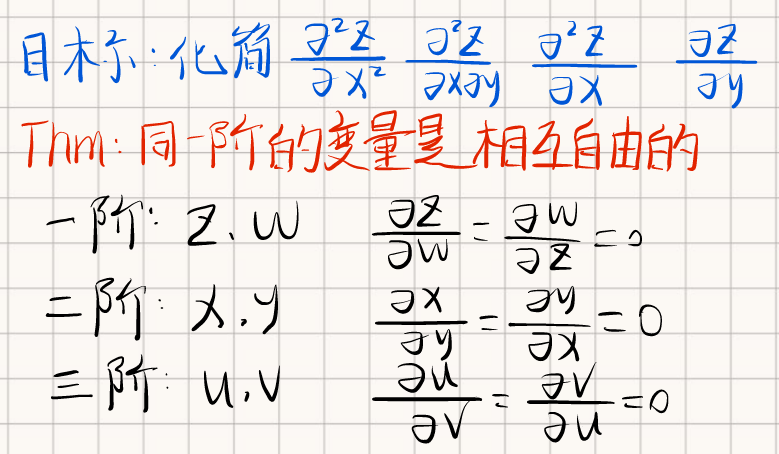 目标:化简 ∂²z/∂x² ∂²z/∂x∂y ∂²z/∂x ∂z/∂y
Thm:同一阶的变量是相互自由的
一阶:z、w ∂z/∂w=∂w/∂z=0
二阶:x,y ∂x/∂y=∂y/∂x=0
三阶:u,v ∂u/∂v=∂v/∂u=0